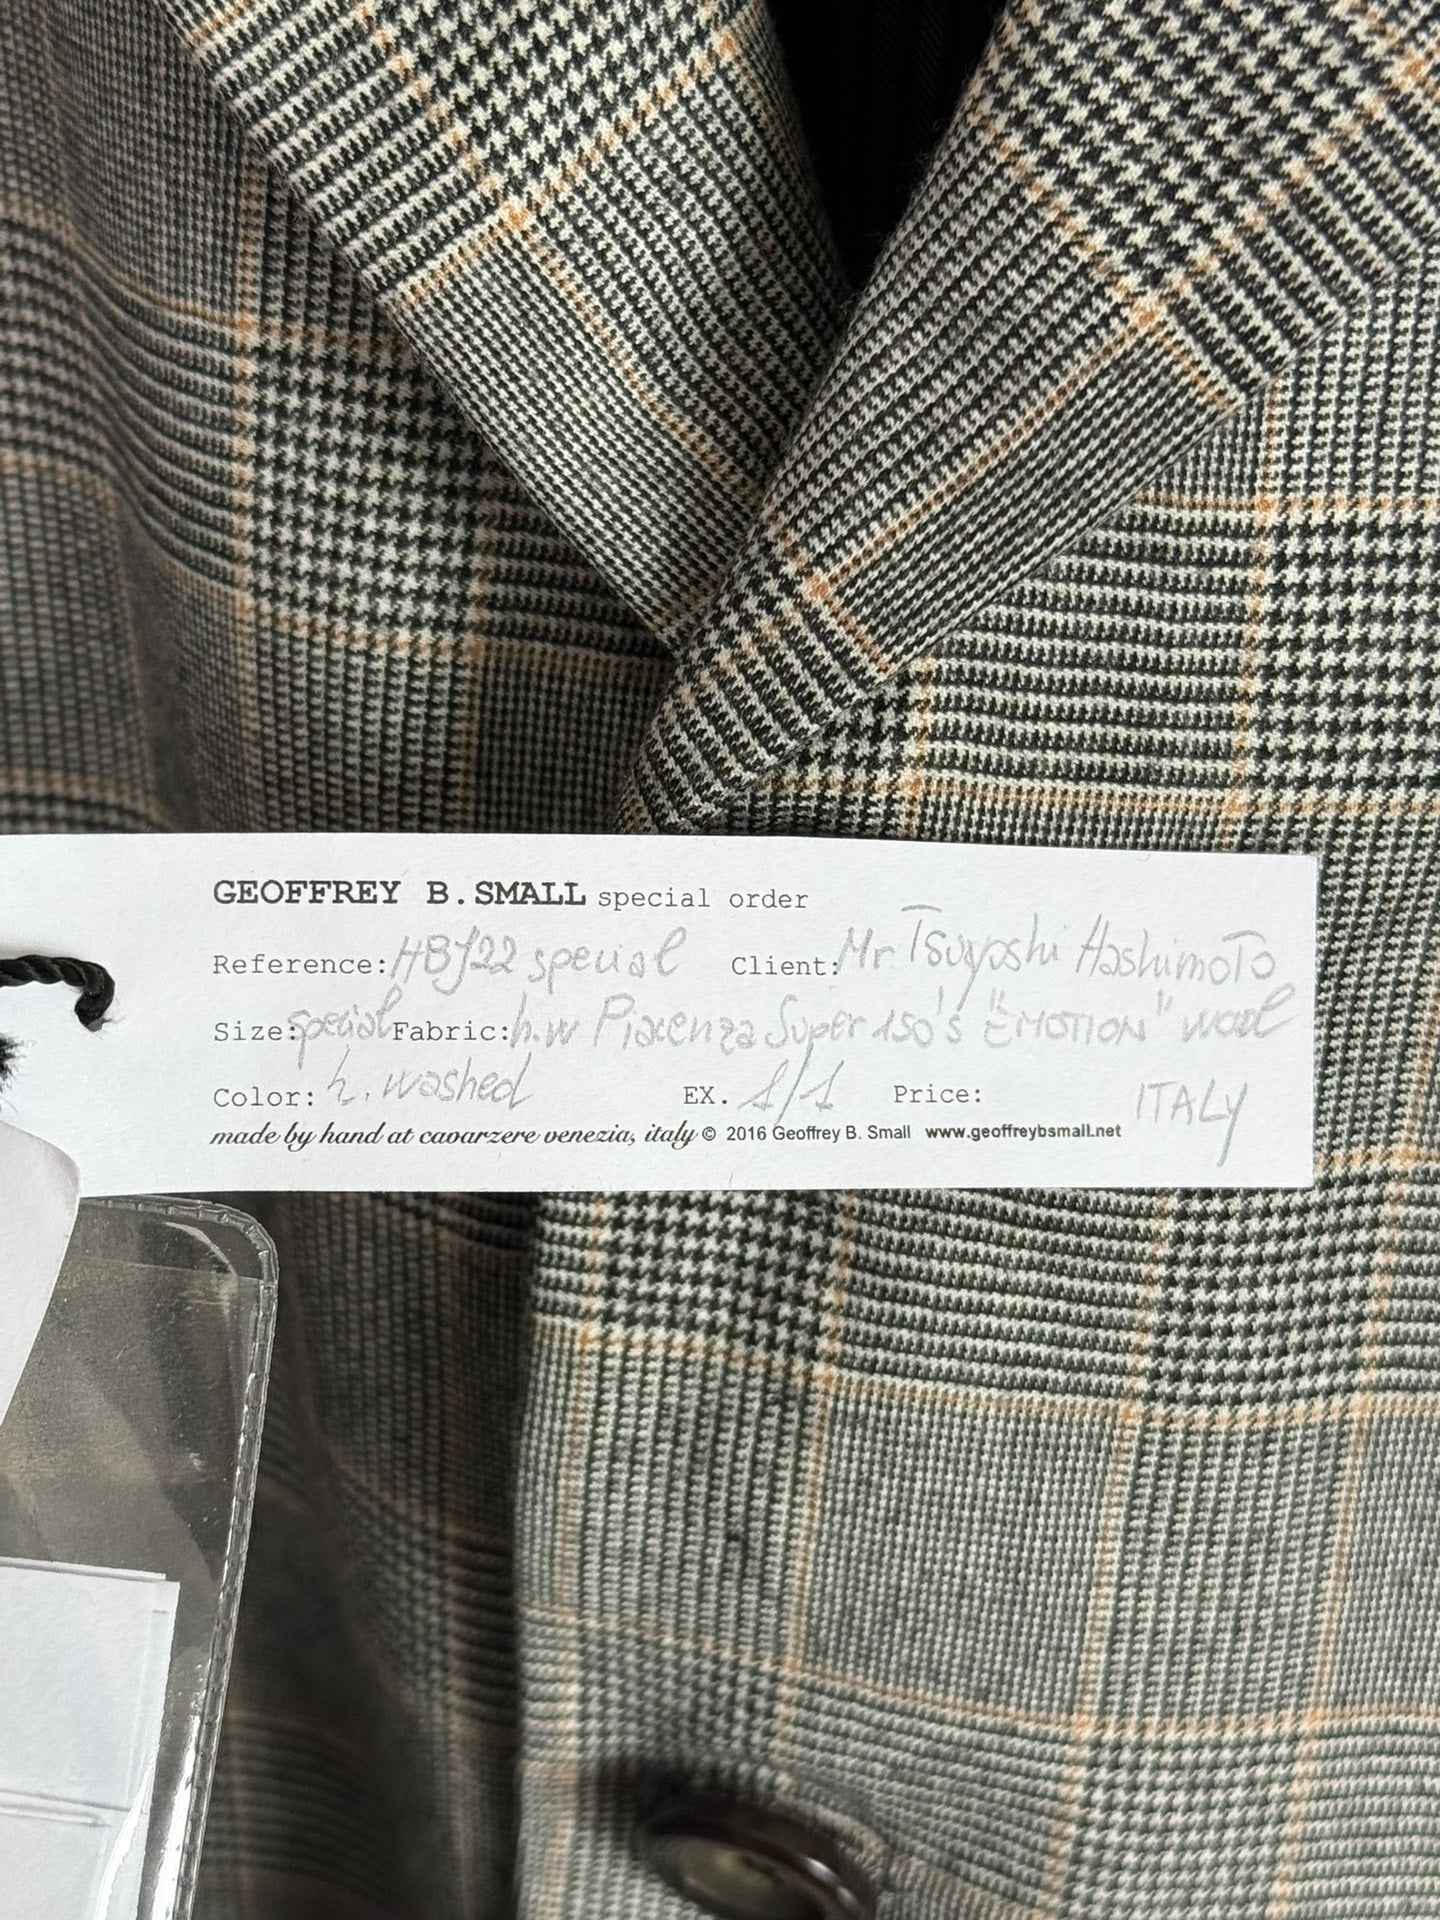 GEOFFREY B. SMALL special order
Reference: HBJ22 special Client: Mr. Tsuyoshi Hashimoto
Size: special Fabric: h.w Piacenza Super 150's "EMOTION" wool
Color: h. washed EX. 1/1 Price: ITALY
made by hand at cavarzere venezia, italy © 2016 Geoffrey B. Small www.geoffreybsmall.net